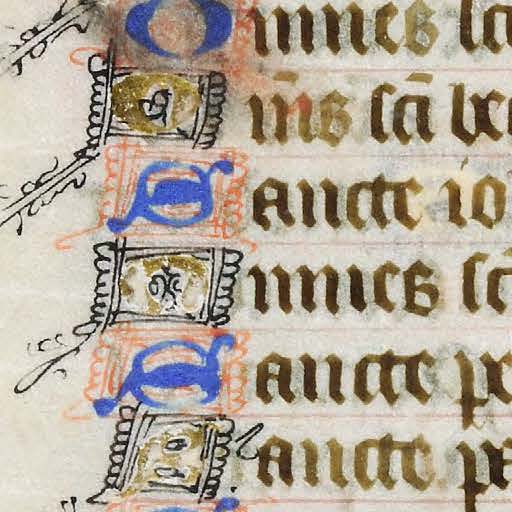 Omnes sc
om̄s sc̄i be
Sancte io
Omnes sc̄
Sancte pe
Sancte pa